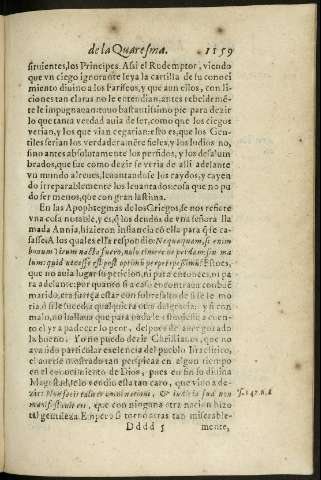 de la Quaresma. 1159
siruientes, los Principes. Assi el Redemptor, viendo
que vn ciego ignorante leya la cartilla de su conoci
miento diuino a los Fariseos, y que aun ellos, con li-
ciones tan claras no le entendian, antes rebeldemē-
te le impugnauan: tuuo bastantissimo pie para dezir
lo que tanta verdad auia de ser, como que los ciegos
verian, y los que vian cegarian: esto es, que los Gen-
tiles serian los verdaderamēte fieles, y los Iudios no,
sino antes absolutamente los perfidos, y los deslum
brados, que fue como dezir se veria de alli adelante
vn mundo al reues, leuantandose los caydos, y cayen
do irreparablemente los leuantados: cosa que no pu
do ser menos, que con gran lastima.
En las Apophtegmas de los Griegos, se nos refiere
vna cosa notable, y es, q̃ los deudos de vna señora lla
mada Annia, hizieron instancia cō ella para q̃ se ca-
sasse. A los quales ella respondio: Nequaquam, si enim
bonum virum nacta fuero, nolo timere ne perdam: sin ma
lum: quid necesse est post optimum perpeti pessimum? Esto es,
que no auia lugar su peticion, ni para entonces, ni pa
ra adelante: por quanto si a caso encontraua con buē
marido, era fuerça estar con sobresalto de si se le mo-
ria, ò si le sucedia qualquiera otra desgracia; y si con
malo, no
to el yr a padecer lo peor, despues de auer gozado
lo bueno. Yo no puedo dezir Christianos, que no
auiendo particular excelencia del pueblo Israelitico,
el auerse mostrado tan perspicaz en algun tiempo
en el conocimiento de Dios, pues en fin su diuina
Magestad, se lo vendio esta tan caro, que vino a de-
zir: Non fecit taliter omni nationi, & iudicia sua non
manifestauit eis, que con ninguna otra nacion hizo
tal gentileza. Empero si tornò atras tan miserable-
Dddd 5 mente,